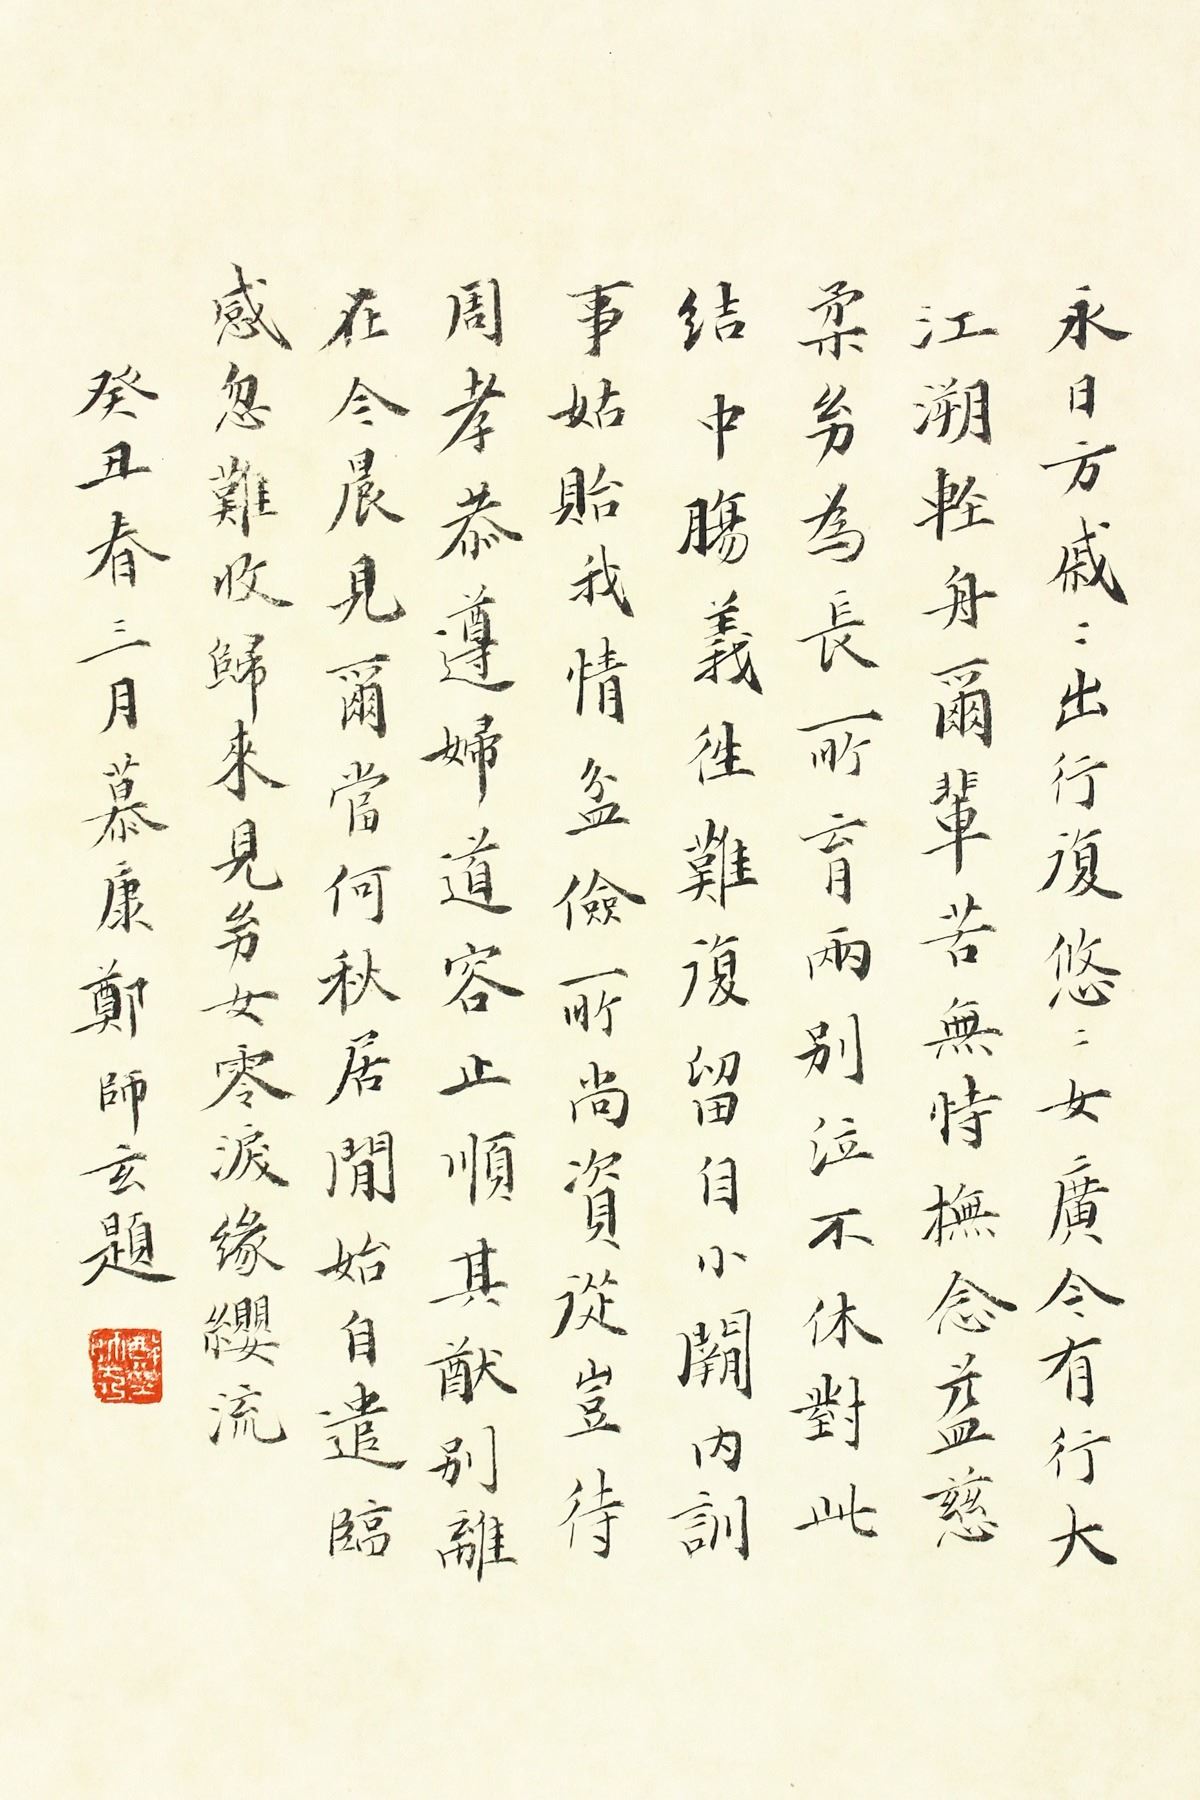 永日方戚〻出行復悠〻女廣今有行大
江溯輕舟爾輩苦無恃撫念益慈
柔㓜為長所育兩別泣不休對此
結中腸義往難復留自小闕內訓
事姑貽我情盆儉所尚資從豈待
周孝恭遵婦道容止順其猷別離
在今晨見爾當何秋居閒始自遣臨
感忽難收歸來見㓜女零淚緣纓流
癸丑春三月慕康鄭師玄題